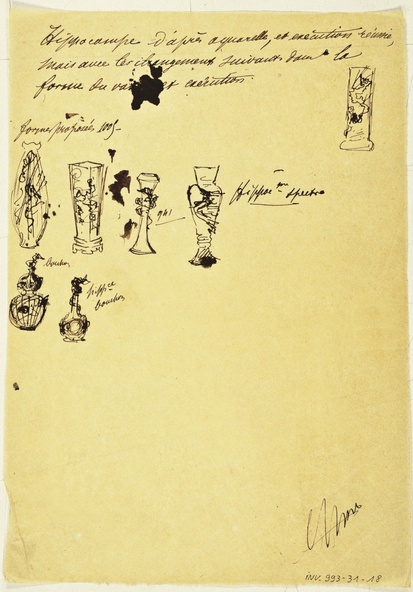 Hippocampe d'après aquarelle, et exécution réunie,
mais avec les changements suivant dans la
forme du vase et exécution.
forme proposée 1005-
941
Hippoc.me spectre
bouchon
hippoc.e
bouchon
INV. 993-31-18